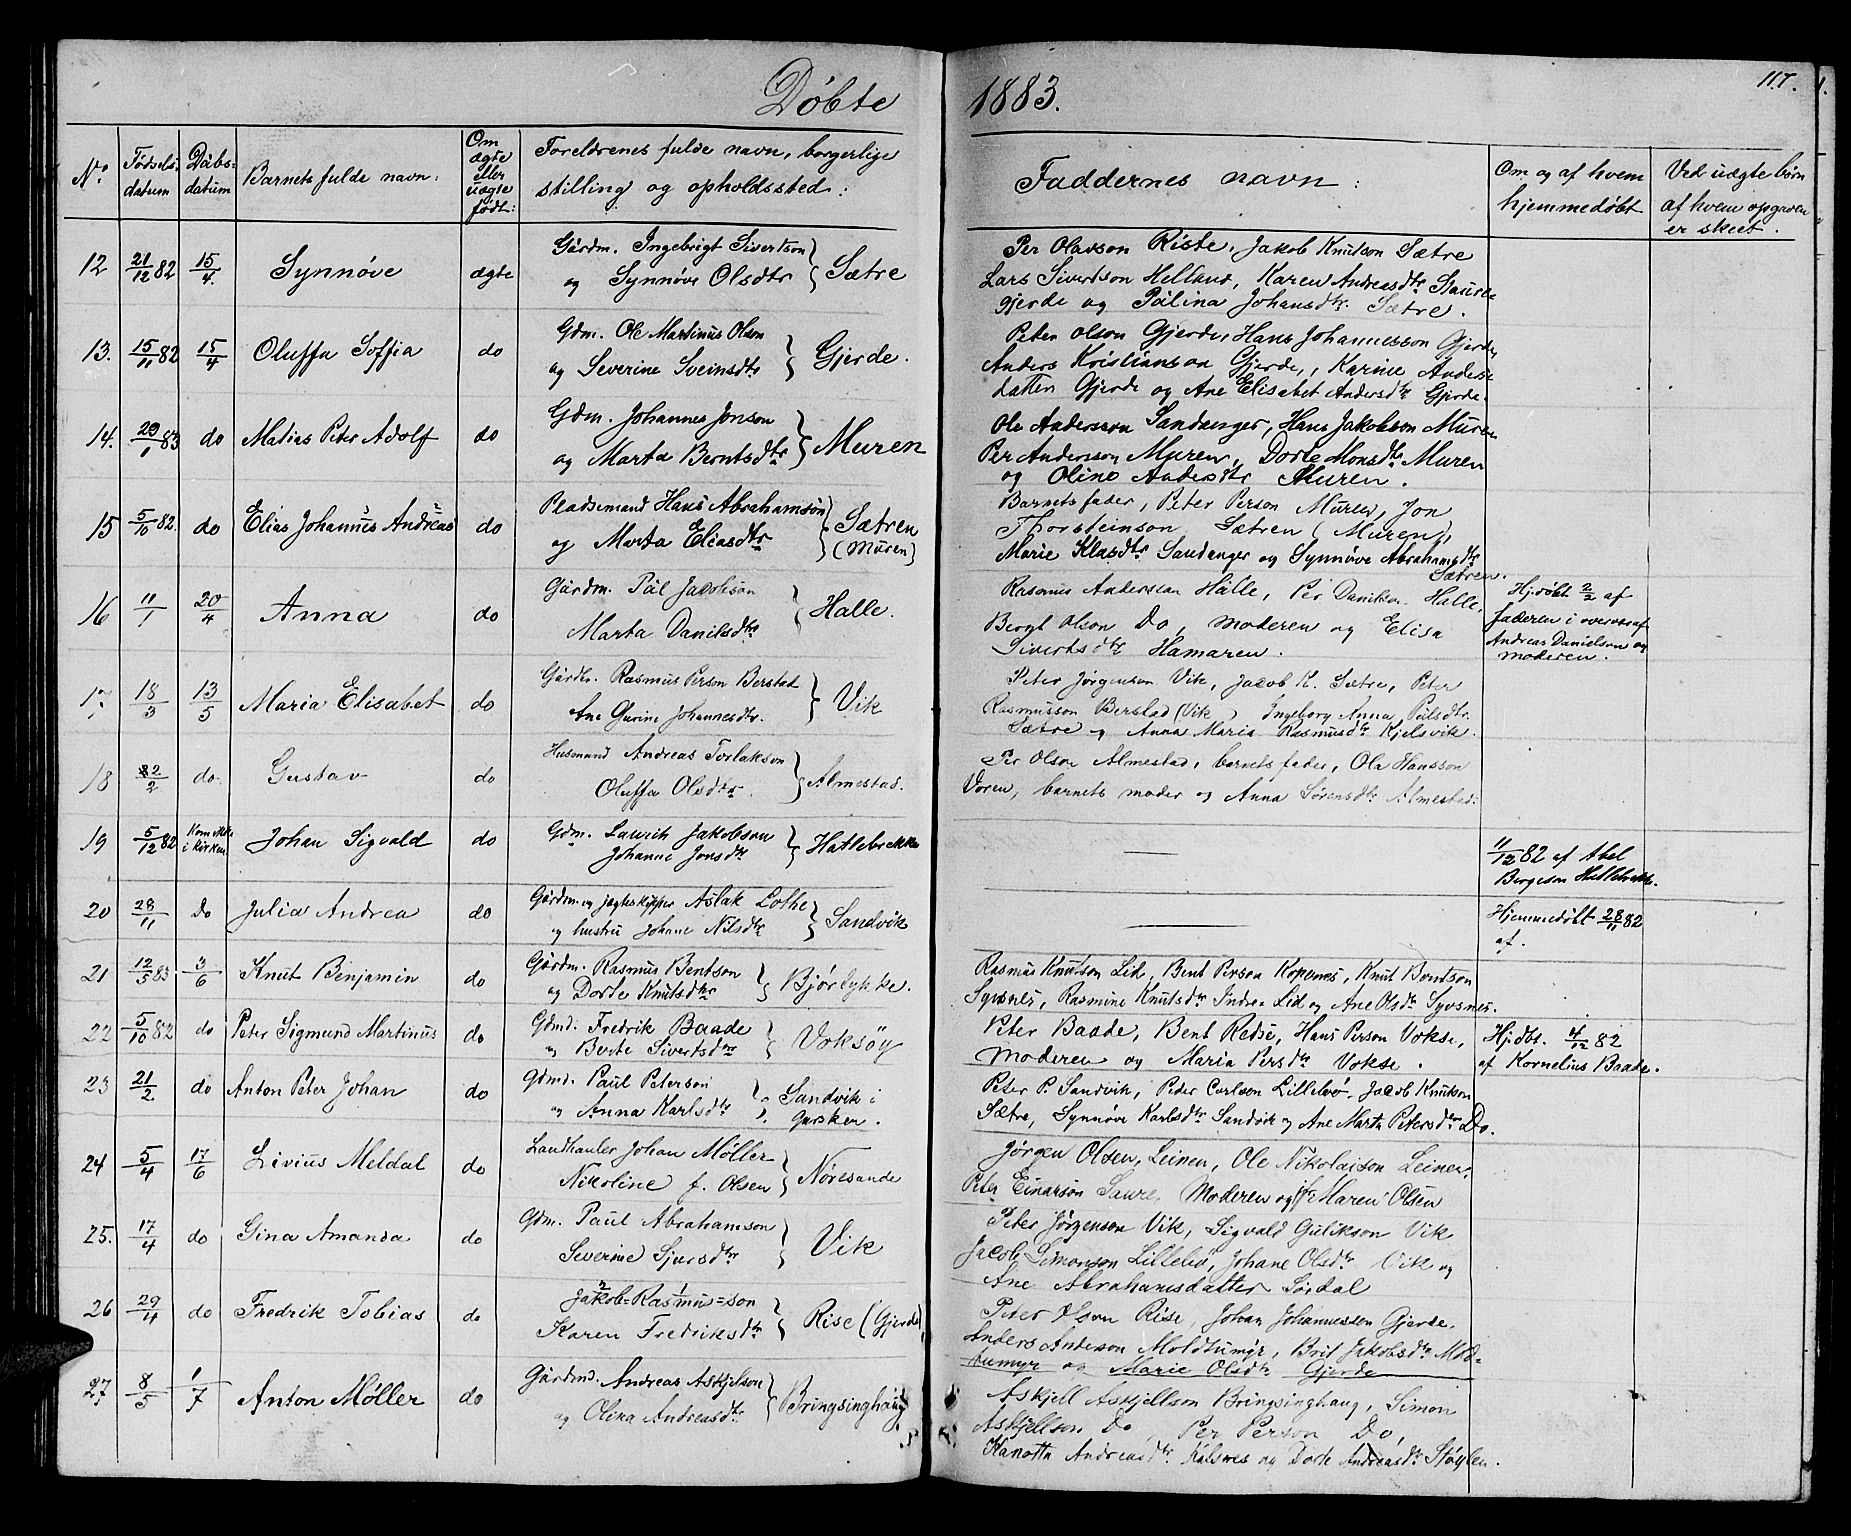 Döbte 1883. 117.
No. Fødsels-datum Dåbs-datum Barnets fulde navn: Om ægte eller uægte født: Foreldrenes fulde navn, borgerlige stilling og opholdssted: Faddernes navn: Om og af hvem hjemmedøbt Ved uægte børn af hvem opgaven er skeet.
12 21/12 82 15/4. Synnöve ægte Gårdm. Ingebrigt Sivertson og Synnöve Olsdtr } Sætre
Per Olavson Riste, Jakob Knutson Sætre
Lars Sivertson Helland, Karen Andreasdtr Saure-
gjerde og Pålina Johansdtr. Sætre.
13. 15/11 82 15/4 Oluffa Soffia do Gdm. Ole Martinus Olson og Severine Sveinsdtr } Gjerde.
Peter Olson Gjerde, Hans Johannesson Gjerde,
Anders Kristianson Gjerde, Karine Anders-
datter Gjerde og Ane Elisabet Andersdtr Gjerde.
14. 29/1 83 do Matias Peter Adolf do Gdm. Johannes Jonson og Marta Berntsdtr } Muren
Ole Andersson Sandanger, Hans Jakobson Muren
Per Andersson Muren, Dorte Monsdtr Muren
og Oline Andersdtr Muren.
15 5/10 82. do Elias Johannes Andreas do Pladsemand Hans Abrahamson og Marta Eliasdtr } Sætren (Muren)
Barnets fader, Peter Person Muren, Jon
Thorsteinson Sætren (Muren),
Marie Klasdtr Sandanger og Synnöve Abrahamsdtr
Sætren.
16 11/1 20/4 Anna do Gårdm. Pål Jacobson Marta Danilsdtr } Halle.
Rasmus Anderssen Halle, Per Danilson Halle,
Bergt Olson Do, moderen og Elisa
Sivertsdtr Hamaren.
Hj.döbt 2/2 af
faderen i overvær af
Andreas Danielson og
moderen.
17. 18/3 13/5 Maria Elisabet do Gårdbr. Rasmus Person Berstad Ane Gurine Johannesdtr. } Vik
Peter Jörgenson Vik, Jacob K. Sætre, Peter
Rasmusson Berstad (Vik) Ingeborg Anna Pålsdtr.
Sætre og Anna Maria Rasmusdtr Kjelsvik.
18 22/2 do. Gustav do Husmand Andreas Torlakson Oluffa Olsdtr. } Almestad.
Per Olson Almestad, barnets fader, Ole Hansson
Voren, barnets moder og Anna Sörensdtr Almestad.
19 5/12 82 Kom ikke i kirken Johan Sigvald do Gdm. Laurits Jakobson Johanne Jonsdtr } Hatlebrekke
—
11/12 82 af Abel
Bergeson Hatlebrekke.
20 28/11 Do Julia Andrea do Gårdm. og jægteskipper Aslak Lothe og hustru Johane Nilsdtr } Sandvik
—
Hjemmedöbt 28/11 82
af.
21 12/3 83. 3/6 Knut Benjamin do Gårdm. Rasmus Bentson og Dorte Knutsdtr } Bjørlykke.
Rasmus Knutson Lid, Bent Person Kopenes, Knut Bentson
Syvsnes, Rasmine Knutsdtr Indre-Lid og Ane Olsdtr Syvsnes.
22 5/10 82 do Peter Sigmund Martinus do Gdmd. Fredrik Baade og Berte Sivertsdtr } Voksöy
Peter Baade, Bent Redse, Hans Person Vokse,
Moderen og Maria Persdtr Vokse.
Hj.dbt. 4/12 82
af Kornelius Baade.
23 21/2 do Anton Peter Johan do Gdmd. Paul Peterson og Anna Karlsdtr } Sandvik i Gursken.
Peter P. Sandvik, Peder Carlson Lillebö, Jacob Knutson
Sætre, Synnöve Karlsdtr Sandvik og Ane Marta Petersdtr Do.
24 5/4 17/6 Livius Meldal do Landhanler Johan Møller Nikoline f. Olsen } Nöresande
Jørgen Olsen, Leinen, Ole Nikolaison Leinen,
Peter Einarson Saure, Moderen og Maren Olsen
25. 17/4 do Gina Amanda do Gdm. Paul Abrahamson Severine Sjursdtr } Vik
Peter Jørgenson Vik, Sigvald Gulikson Vik
Jacob Simonson Lillebö, Johane Olsdtr Vik og
Ane Abrahamsdatter Sördal
26 29/4 do Fredrik Tobias do Jakob=Rasmus=son Karen Fredriksdtr } Rise (Gjerde)
Peter Olson Rise, Johan Johannessen Gjerde.
Anders Anderson Moldtumyr, Brit Jakobsdtr Mold-
tumyr og Marie Olsdtr Gjerde
27. 8/5 1/7 Anton Møller do Gårdmd. Andreas Askjelson og Olina Andreasdtr. } Bringsinghaug
Askjell Askjellson Bringsinghaug, Simon
Askjellson Do, Per Person Do,
Hanotta Andreasdtr. Kålsnes og Dorte Andreasdtr Støylen.